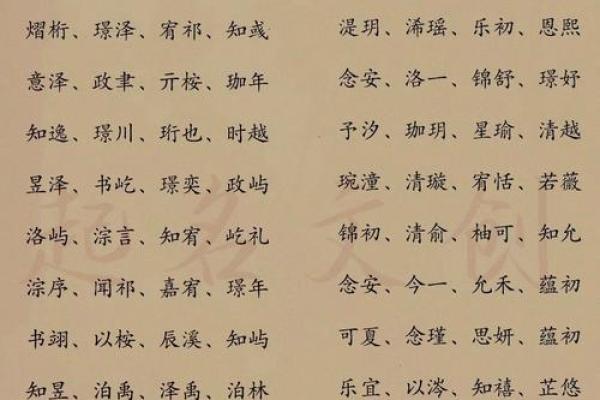 熠桁、璟泽、宥祁、知彧
意泽、政聿、亓桉、珈年
知逸、璟川、珩也、时越
昱泽、书屹、璟奕、政屿
洛屿、淙言、知宥、屹礼
淙序、闻祁、嘉宥、璟年
书翊、以桉、辰溪、知屿
知昱、泊禹、泽禹、泊林
湜玥、浠瑶、乐初、恩熙
念安、洛一、锦舒、璟妤
予汐、珈玥、星瑜、清越
琬潼、清璇、宥恬、若薇
锦初、清俞、柚可、知允
念安、今一、允禾、蕴初
可夏、念瑾、思妍、蕴初
乐宜、以涔、知禧、芷悠
起名文创